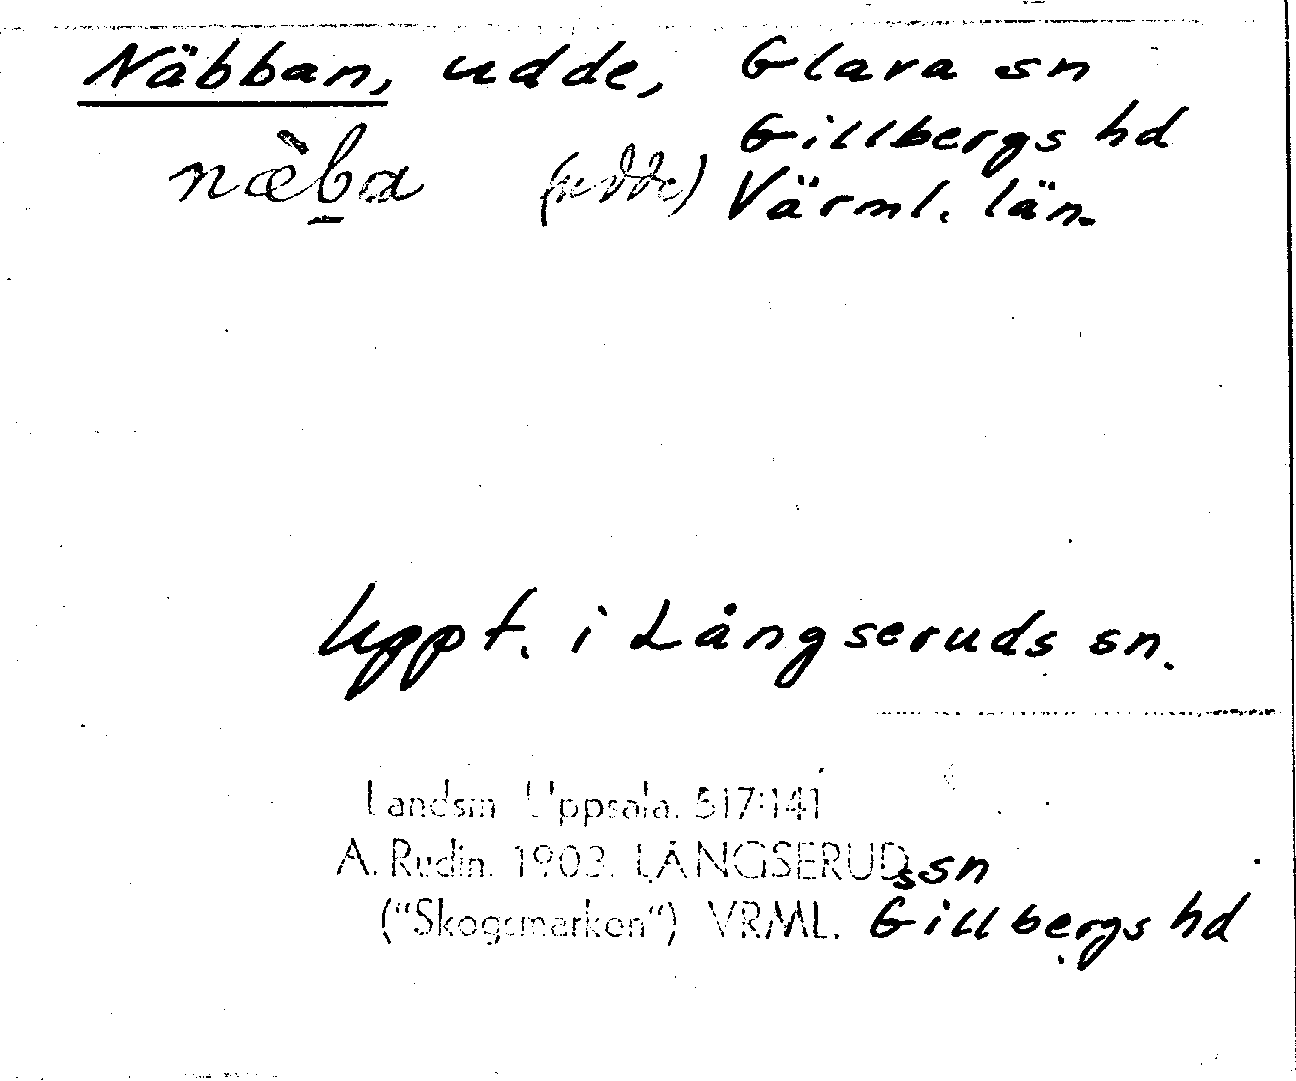 Näbban, udde, Glava sn
Gillbergs hd
næ̀b̲a (udde) Värml. län.
Uppt. i Långseruds sn.
Landsm Uppsala. 517:141
A. Rudin. 1903. LÅNGSERUDssn
("Skogsmarken") VRML. Gillbergs hd